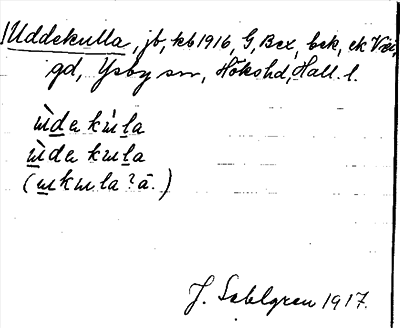 Uddekulla, jb, kb 1916, G, Bex, bek, ek Vxi,
gd, Ysby sn, Hökshd, Hall. l.
ùde kùla
ùde kula
(ukula? ā.)
J. Sahlgren 1917.